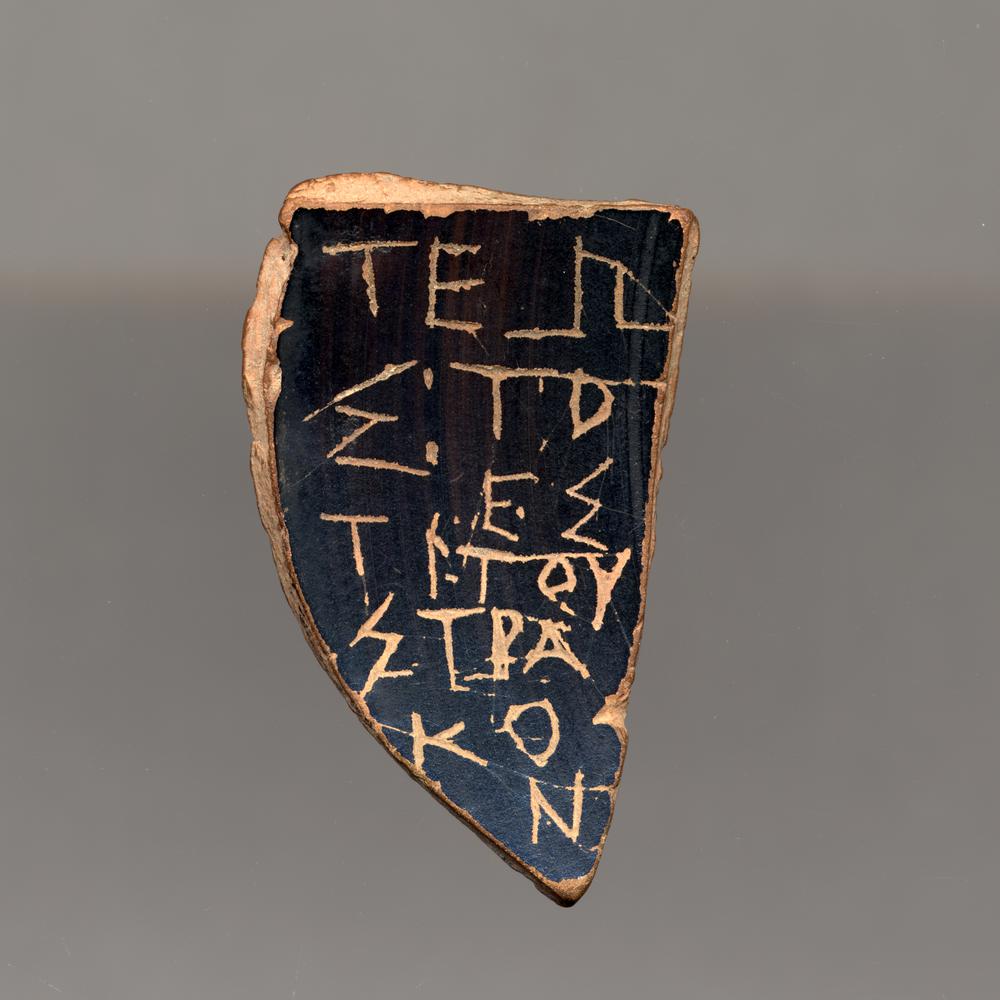 Σ : ΤΟ
ΕΣ
ΤΙ : ΤΟΥ
ΣΤΡΑ
ΚΟ
Ν